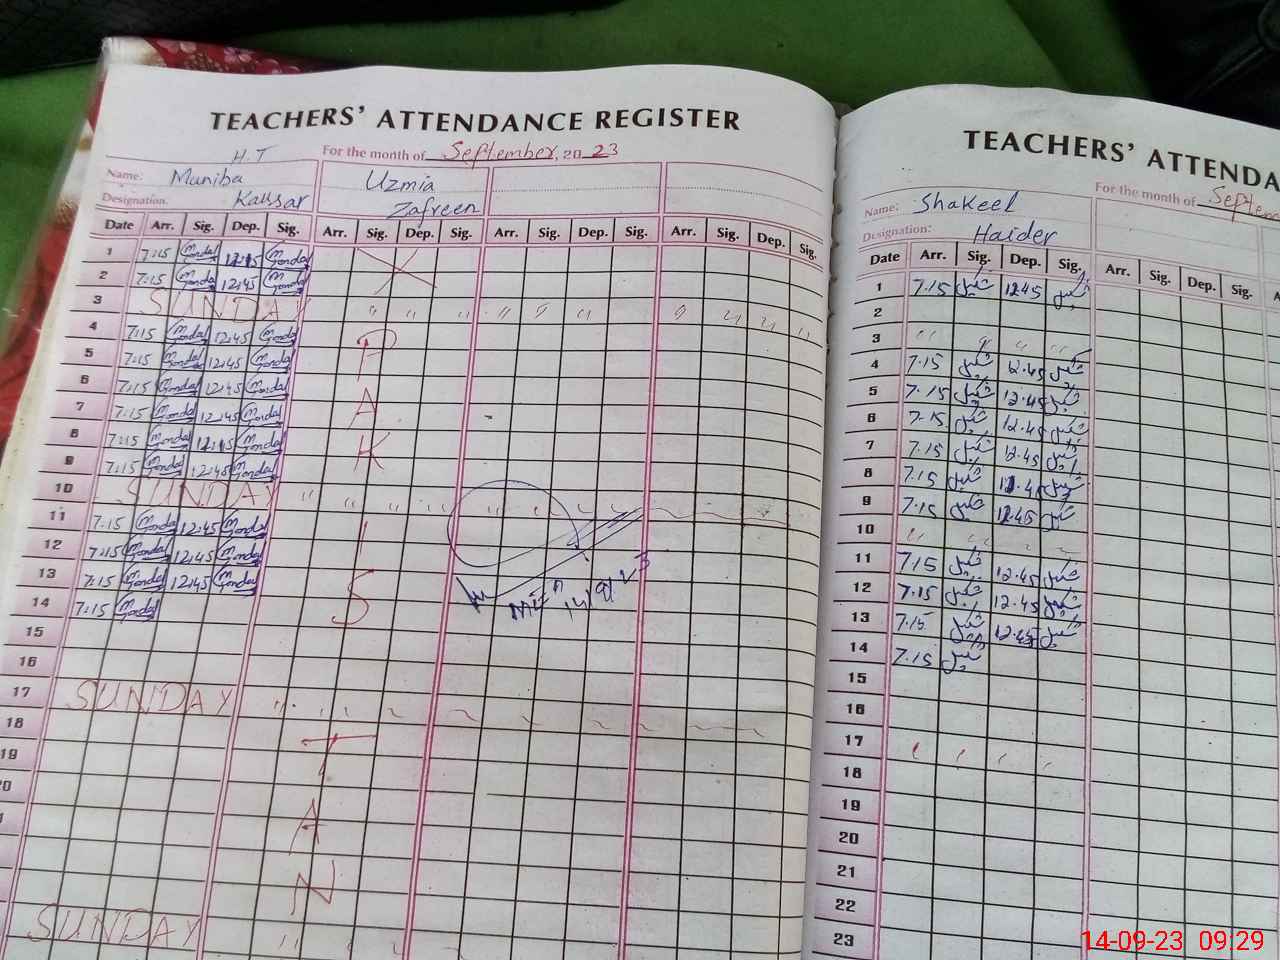 TEACHERS' ATTENDANCE REGISTER
H.T
For the month of September, 2023
Name: Muniba Uzmia
Designation. Kaussar Zafreen
Date Arr. Sig. Dep. Sig. Arr. Sig. Dep. Sig. Arr. Sig. Dep. Sig. Arr. Sig. Dep. Sig.
1 7:15 12:45
2 7:15 12:45
3 SUNDAY
4 7:15 12:45 P
5 7:15 12:45
6 7:15 12:45 A
7 7:15 12:45
8 7:15 12:45 K
9 7:15 12:45
10 SUNDAY
11 7:15 12:45 I
12 7:15 12:45
13 7:15 12:45 S
14 7:15
15
16
17 SUNDAY
18 T
19
20
A
N
SUNDAY
TEACHERS' ATTENDA
For the month of Septem
Name: Shakeel
Designation: Haider
Date Arr. Sig. Dep. Sig. Arr. Sig. Dep. Sig.
1 7.15 شکیل 12.45 شکیل
2
3
4 7.15 شکیل 12.45 شکیل
5 7.15 شکیل 12.45 شکیل
6 7.15 شکیل 12.45 شکیل
7 7.15 شکیل 12.45 شکیل
8 7.15 شکیل 12.45 شکیل
9 7.15 شکیل 12.45 شکیل
10
11 7.15 شکیل 12.45 شکیل
12 7.15 شکیل 12.45 شکیل
13 7.15 شکیل 12.45 شکیل
14 7.15 شکیل
15
16
17
18
19
20
21
22
23
14-09-23 09:29